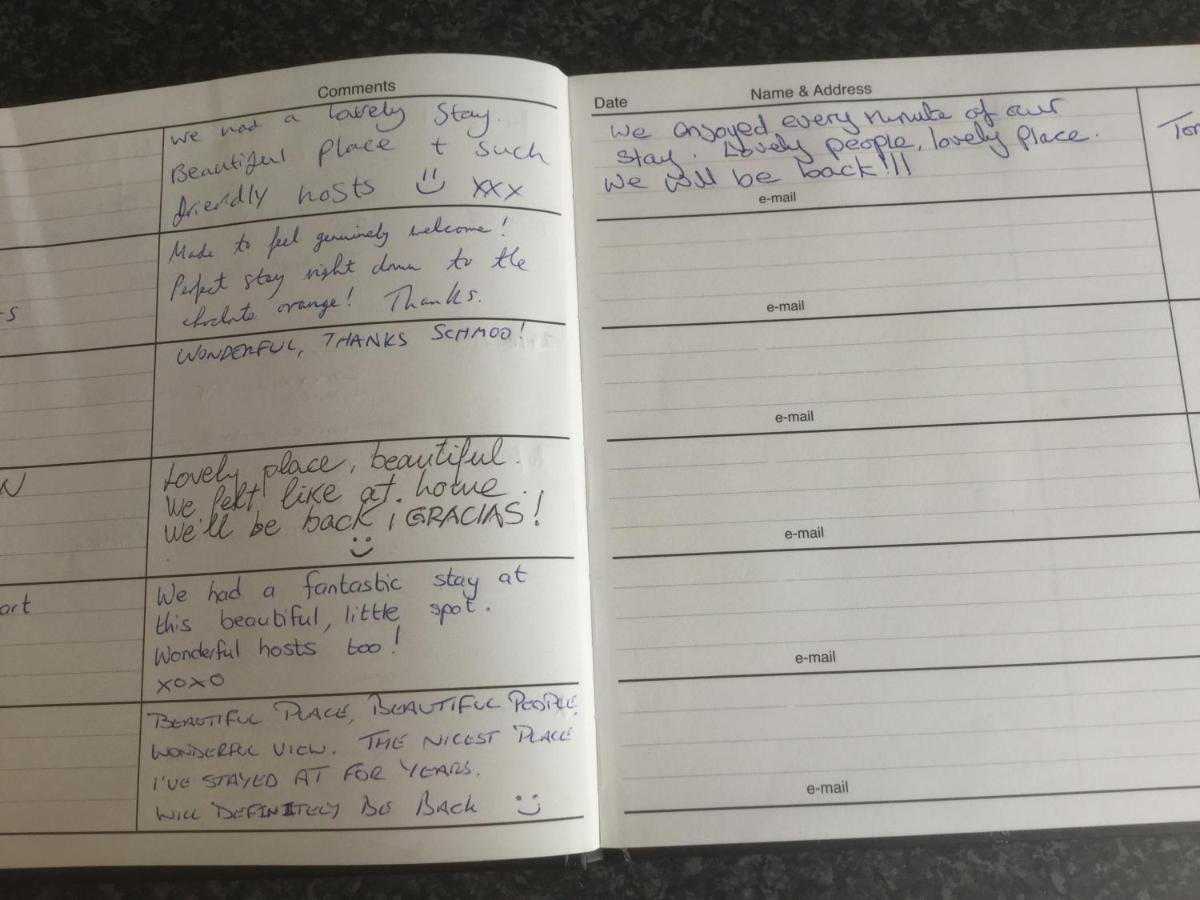 Comments
We had a lovely stay.
Beautiful place + such
friendly hosts xxx
Made to feel genuinely welcome!
Perfect stay right down to the
chocolate orange! Thanks.
s
WONDERFUL, THANKS SCHMOO!
N
Lovely place, beautiful.
We felt like at home.
We'll be back ¡GRACIAS!
art
We had a fantastic stay at
this beautiful, little spot.
Wonderful hosts too!
xoxo
BEAUTIFUL PLACE, BEAUTIFUL PEOPLE,
WONDERFUL VIEW. THE NICEST PLACE
I'VE STAYED AT FOR YEARS.
WILL DEFINITELY BE BACK
Date Name & Address
We enjoyed every minute of our
stay. Lovely people, lovely place.
We will be back!!!
e-mail
e-mail
e-mail
e-mail
e-mail
e-mail